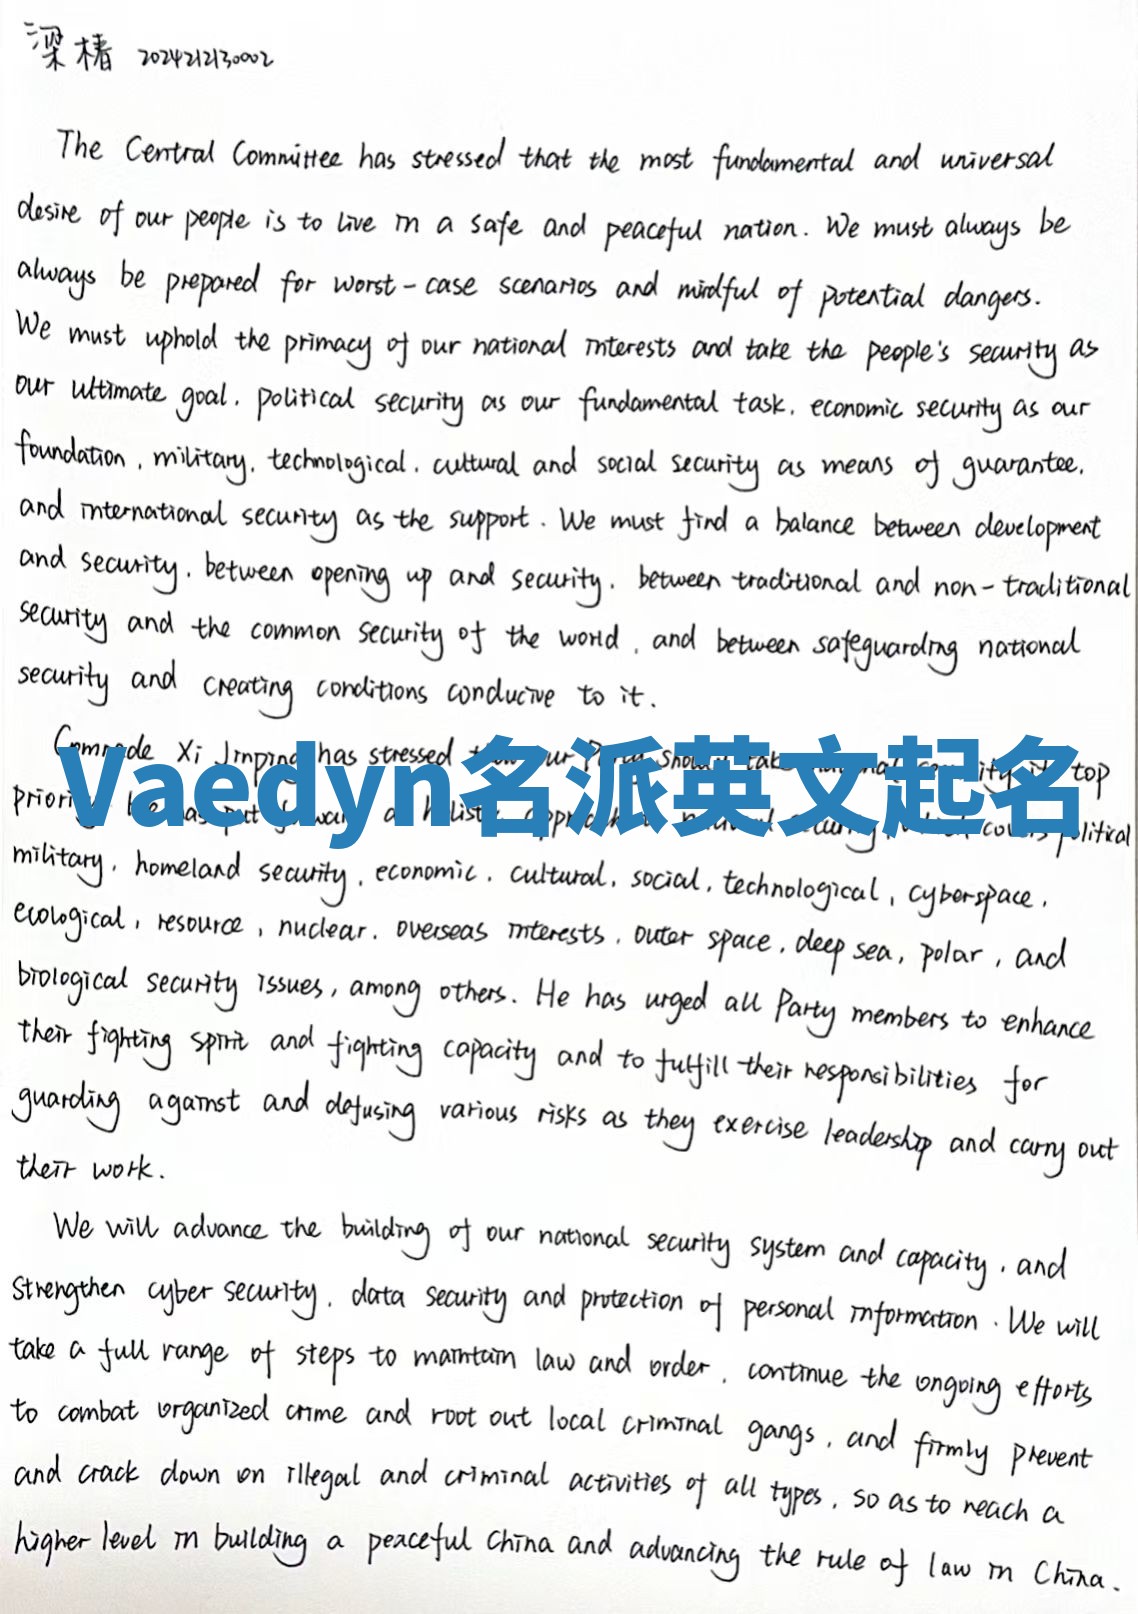 梁椿 2024212130002
The Central Committee has stressed that the most fundamental and universal
desire of our people is to live in a safe and peaceful nation. We must always be
always be prepared for worst-case scenarios and mindful of potential dangers.
We must uphold the primacy of our national interests and take the people's security as
our ultimate goal, political security as our fundamental task, economic security as our
foundation, military, technological, cultural and social security as means of guarantee,
and international security as the support. We must find a balance between development
and security, between opening up and security, between traditional and non-traditional
security and the common security of the world, and between safeguarding national
security and creating conditions conducive to it.
Comrade Xi Jinping has stressed our top
Vaedyn名派英文起名
political
military, homeland security, economic, cultural, social, technological, cyberspace,
ecological, resource, nuclear, overseas interests, outer space, deep sea, polar, and
biological security issues, among others. He has urged all Party members to enhance
their fighting spirit and fighting capacity and to fulfill their responsibilities for
guarding against and defusing various risks as they exercise leadership and carry out
their work.
We will advance the building of our national security system and capacity, and
strengthen cyber security, data security and protection of personal information. We will
take a full range of steps to maintain law and order, continue the ongoing efforts
to combat organized crime and root out local criminal gangs, and firmly prevent
and crack down on illegal and criminal activities of all types, so as to reach a
higher level in building a peaceful China and advancing the rule of law in China.